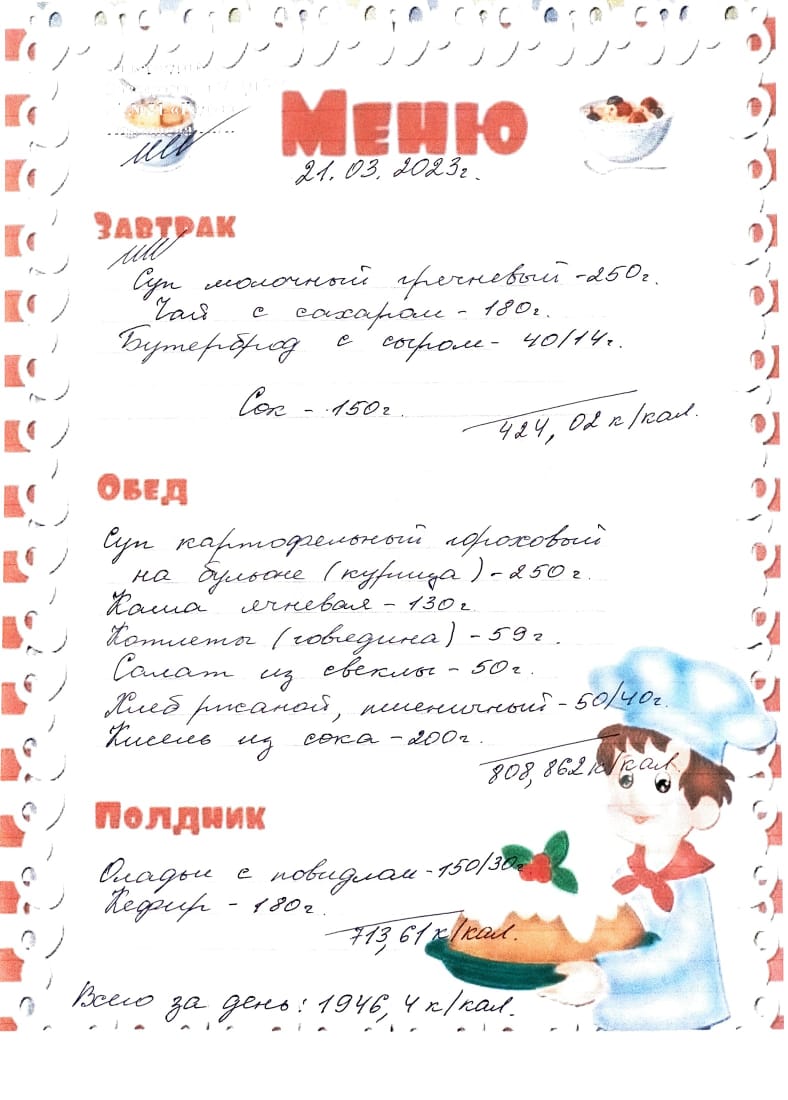 Меню
21.03.2023г.
Завтрак
Суп молочный гречневый-250г.
Чай с сахаром-180г.
Бутерброд с сыром-40/14г.
Сок-150г.
424,02 к/кал.
Обед
Суп картофельный гороховый
на бульоне (курица)-250г.
Каша ячневая-130г.
Котлеты (говядина)-59г.
Салат из свеклы-50г.
Хлеб ржаной, пшеничный-50/40г.
Кисель из сока-200г.
808,862 к/кал.
Полдник
Оладьи с повидлом-150/30г
Кефир-180г.
713,61 к/кал.
Всего за день: 1946,4 к/кал.